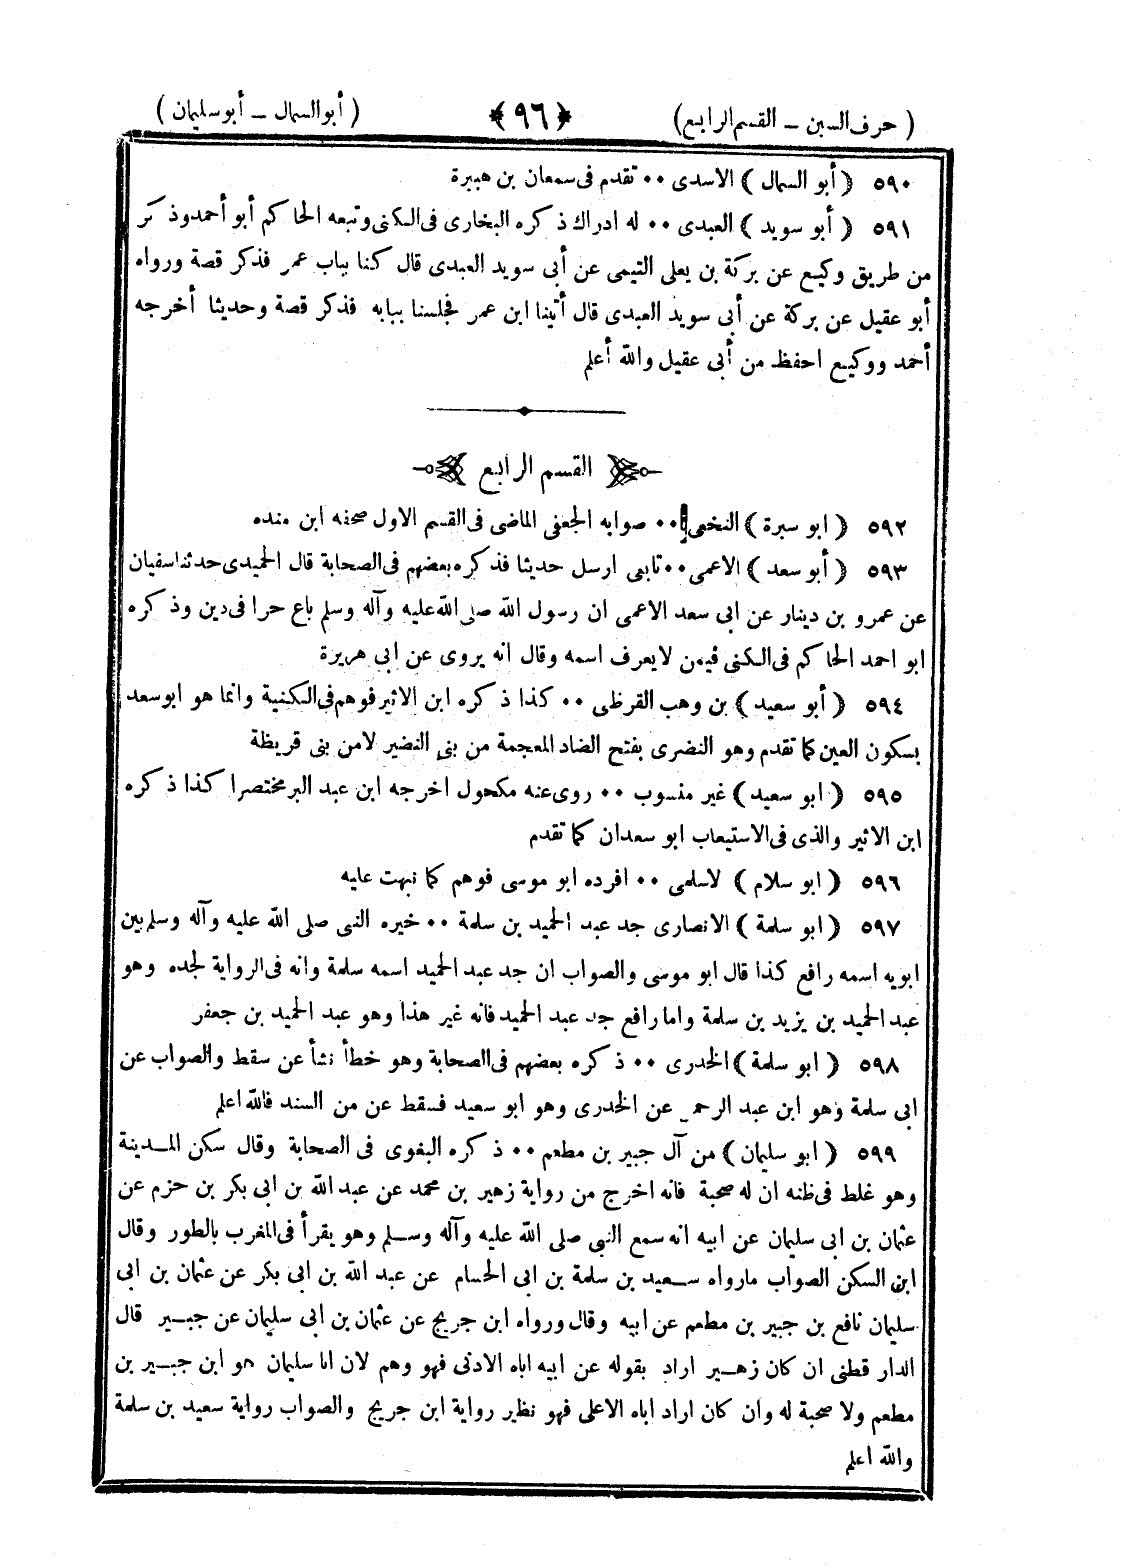 ( حرف السين ــ القسم الرابع ) ﴿ ٩٦ ﴾ ( أبو السمال ــ أبو سليمان )
٥٩٠ ( أبو السمال ) الاسدى ۰۰ تقدم فى سمعان بن هبيرة
٥٩١ ( أبو سويد ) العبدى ۰۰ له ادراك ذكره البخارى فى الكنى وتبعه الحاكم أبو أحمد وذكر
من طريق وكيع عن بركة بن يعلى التيمى عن أبى سويد العبدى قال كنا بباب عمر فذكر قصة ورواه
أبو عقيل عن بركة عن أبى سويد العبدى قال أتينا ابن عمر فجلسنا ببابه فذكر قصة وحديثا أخرجه
أحمد ووكيع احفظ من أبى عقيل والله أعلم
القسم الرابع
٥٩٢ ( ابو سبرة ) النخعى ۰۰ صوابه الجعفى الماضى فى القسم الاول صحفه ابن منده
٥٩٣ ( أبو سعد ) الاعمى ۰۰ تابعى ارسل حديثا فذكره بعضهم فى الصحابة قال الحميدى حدثنا سفيان
عن عمرو بن دينار عن ابى سعد الاعمى ان رسول الله صلى الله عليه وآله وسلم باع حرا فى دين وذكره
ابو احمد الحاكم فى الكنى فيمن لا يعرف اسمه وقال انه يروى عن ابى هريرة
٥٩٤ ( أبو سعيد ) بن وهب القرظى ۰۰ كذا ذكره ابن الاثير فوهم فى الكنية وانما هو ابو سعد
بسكون العين كما تقدم وهو النضرى بفتح الضاد المعجمة من بنى النضير لا من بنى قريظة
٥٩٥ ( ابو سعيد ) غير منسوب ۰۰ روى عنه مكحول اخرجه ابن عبد البر مختصرا كذا ذكره
ابن الاثير والذى فى الاستيعاب ابو سعدان كما تقدم
٥٩٦ ( ابو سلام ) لاسلمى ۰۰ افرده ابو موسى فوهم كما نبهت عليه
٥٩٧ ( ابو سلمة ) الانصارى جد عبد الحميد بن سلمة ۰۰ خيره النبى صلى الله عليه وآله وسلم بين
ابويه اسمه رافع كذا قال ابو موسى والصواب ان جد عبد الحميد اسمه سلمة وانه فى الرواية لجده وهو
عبد الحميد بن يزيد بن سلمة واما رافع جد عبد الحميد فانه غير هذا وهو عبد الحميد بن جعفر
٥٩٨ ( ابو سلمة ) الخدرى ۰۰ ذكره بعضهم فى الصحابة وهو خطأ نشأ عن سقط والصواب عن
ابى سلمة وهو ابن عبد الرحمن عن الخدرى وهو ابو سعيد فسقط عن من السند فالله اعلم
٥٩٩ ( ابو سليمان ) من آل جبير بن مطعم ۰۰ ذكره البغوى فى الصحابة وقال سكن المدينة
وهو غلط فى ظنه ان له صحبة فانه اخرج من رواية زهير بن محمد عن عبد الله بن ابى بكر بن حزم عن
عثمان بن ابى سليمان عن ابيه انه سمع النبى صلى الله عليه وآله وسلم وهو يقرأ فى المغرب بالطور وقال
ابن السكن الصواب مارواه سعيد بن سلمة بن ابى الحسام عن عبد الله بن ابى بكر عن عثمان بن ابى
سليمان نافع بن جبير بن مطعم عن ابيه وقال ورواه ابن جريج عن عثمان بن ابى سليمان عن جبير قال
الدار قطنى ان كان زهير اراد بقوله عن ابيه اباه الادنى فهو وهم لان ابا سليمان هو ابن جبير بن
مطعم ولا صحبة له وان كان اراد اباه الاعلى فهو نظير رواية ابن جريج والصواب رواية سعيد بن سلمة
والله اعلم